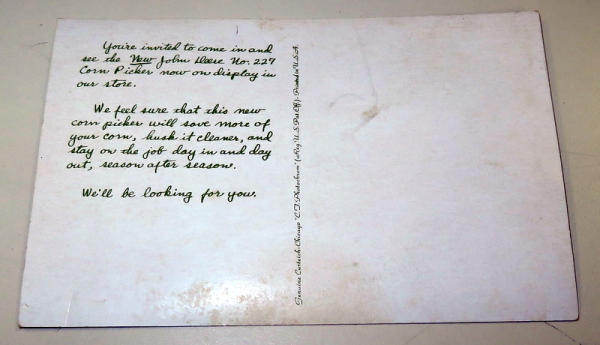 You're invited to come in and
see the New John Deere No. 227
Corn Picker now on display in
our store.
We feel sure that this new
corn picker will save more of
your corn, husk it cleaner, and
stay on the job day in and day
out, season after season.
We'll be looking for you.
Genuine Curteich-Chicago "C.T. Photochrom" (® Reg. U.S. Pat. Off.) Printed in U.S.A.